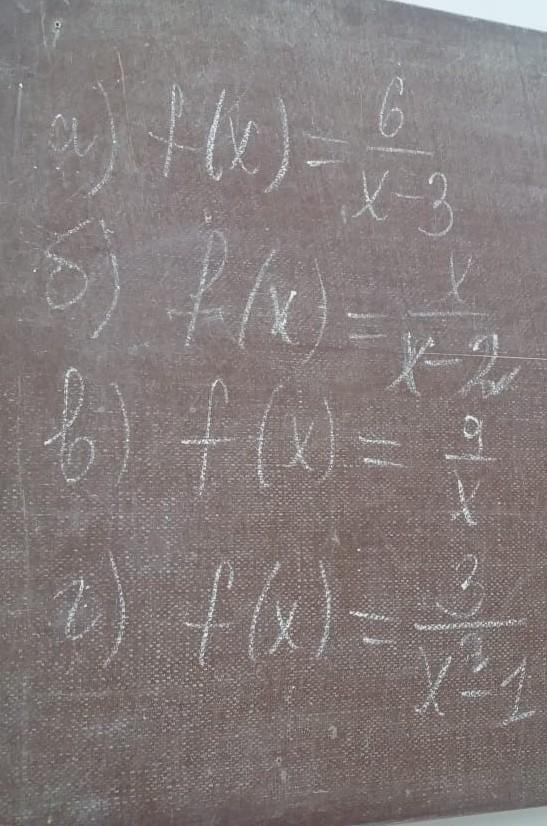 а) f(x) = 6/(x-3)
б) f(x) = x/(x-2)
в) f(x) = 9/x
г) f(x) = 3/(x²-1)